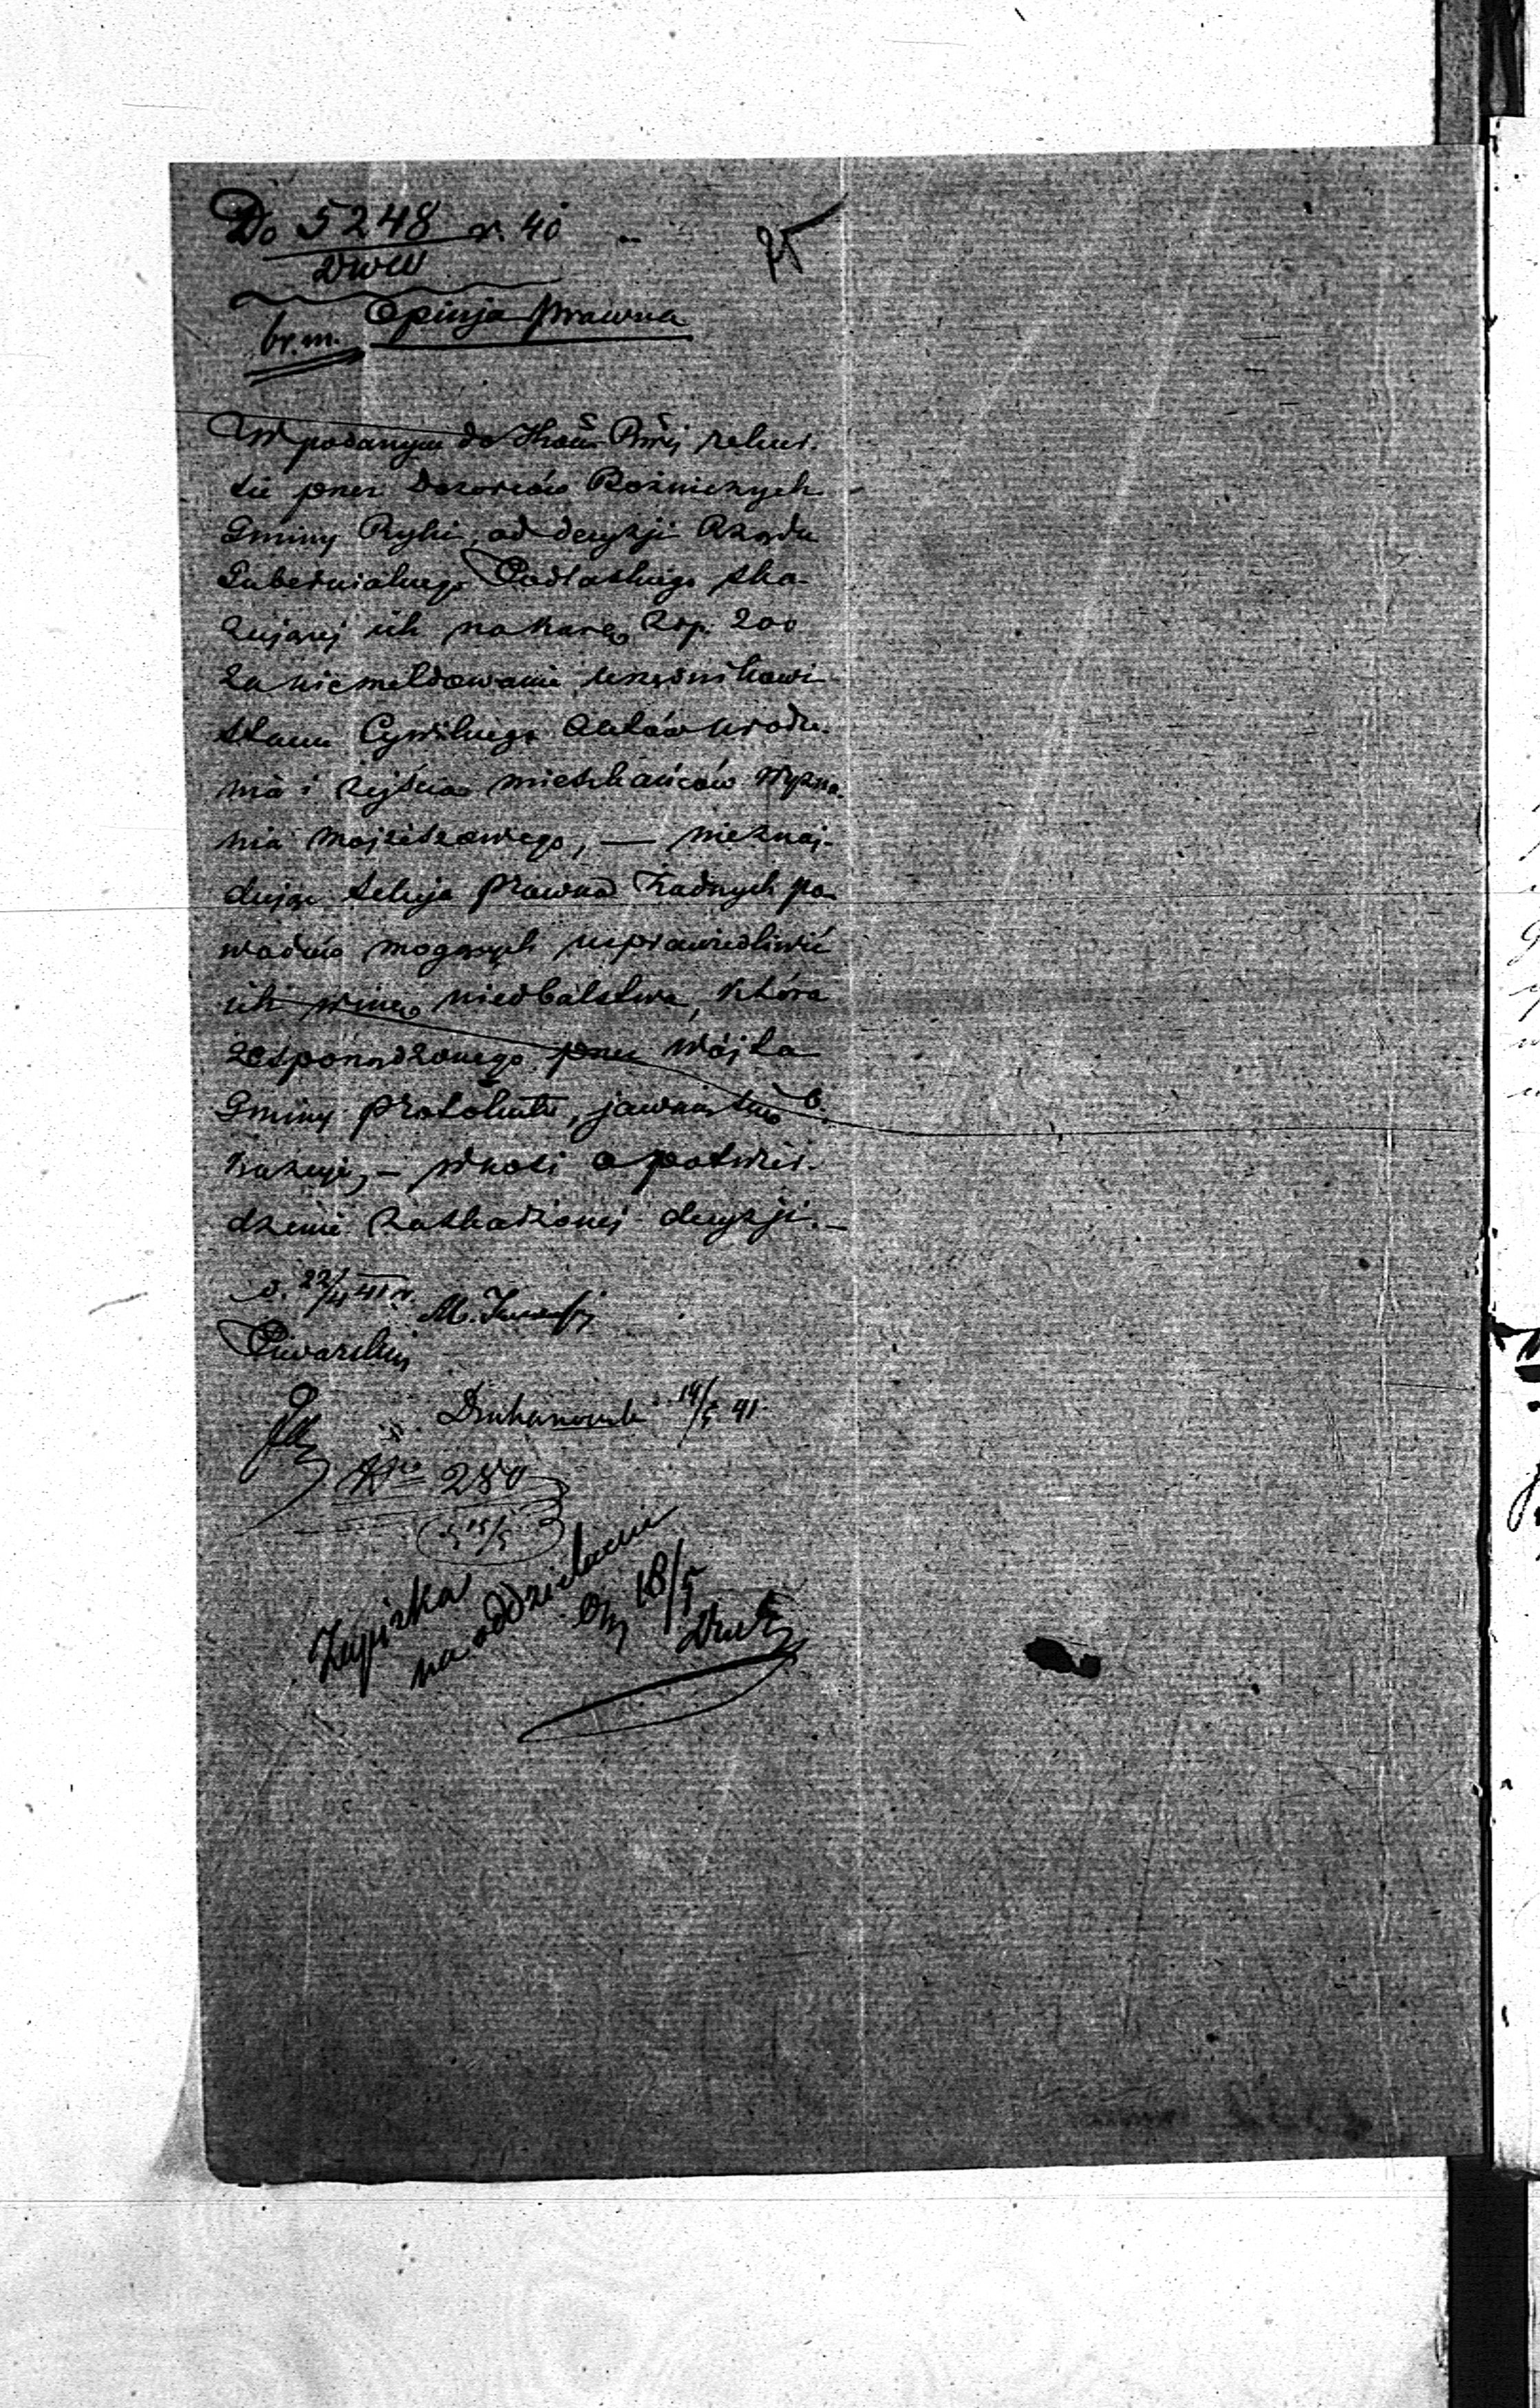 Do 5248 r. 40
DWW
75
Opinja prawna
br. m.
W podanym do Kom Rzej rekur-
sie przez Dozorców Bożnicznych
Gminy Ryki, od decyzji Rządu
Gubernialnego Podlaskiego ska-
zującej ich na karę Złp. 200
za niemeldowanie urzędnikowi
stanu Cywilnego Aktów urodze-
nia i zejścia mieszkańców Wyzna-
nia mojżeszowego, — nieznaj-
dując Sekcja prawna żadnych po-
wodów mogących usprawiedliwić
ich winę niedbalstwa, która
ze sporządzonego przez Wójta
Gminy protokułu, jawnie się o-
kazuje, — wnosi o potwier-
dzenie zaskarżonej decyzji. —
d. 22/4 41 r.
Piwarski
14/5 41
Nro 280
15/5
Zapiska
na oddzielnie
18/5